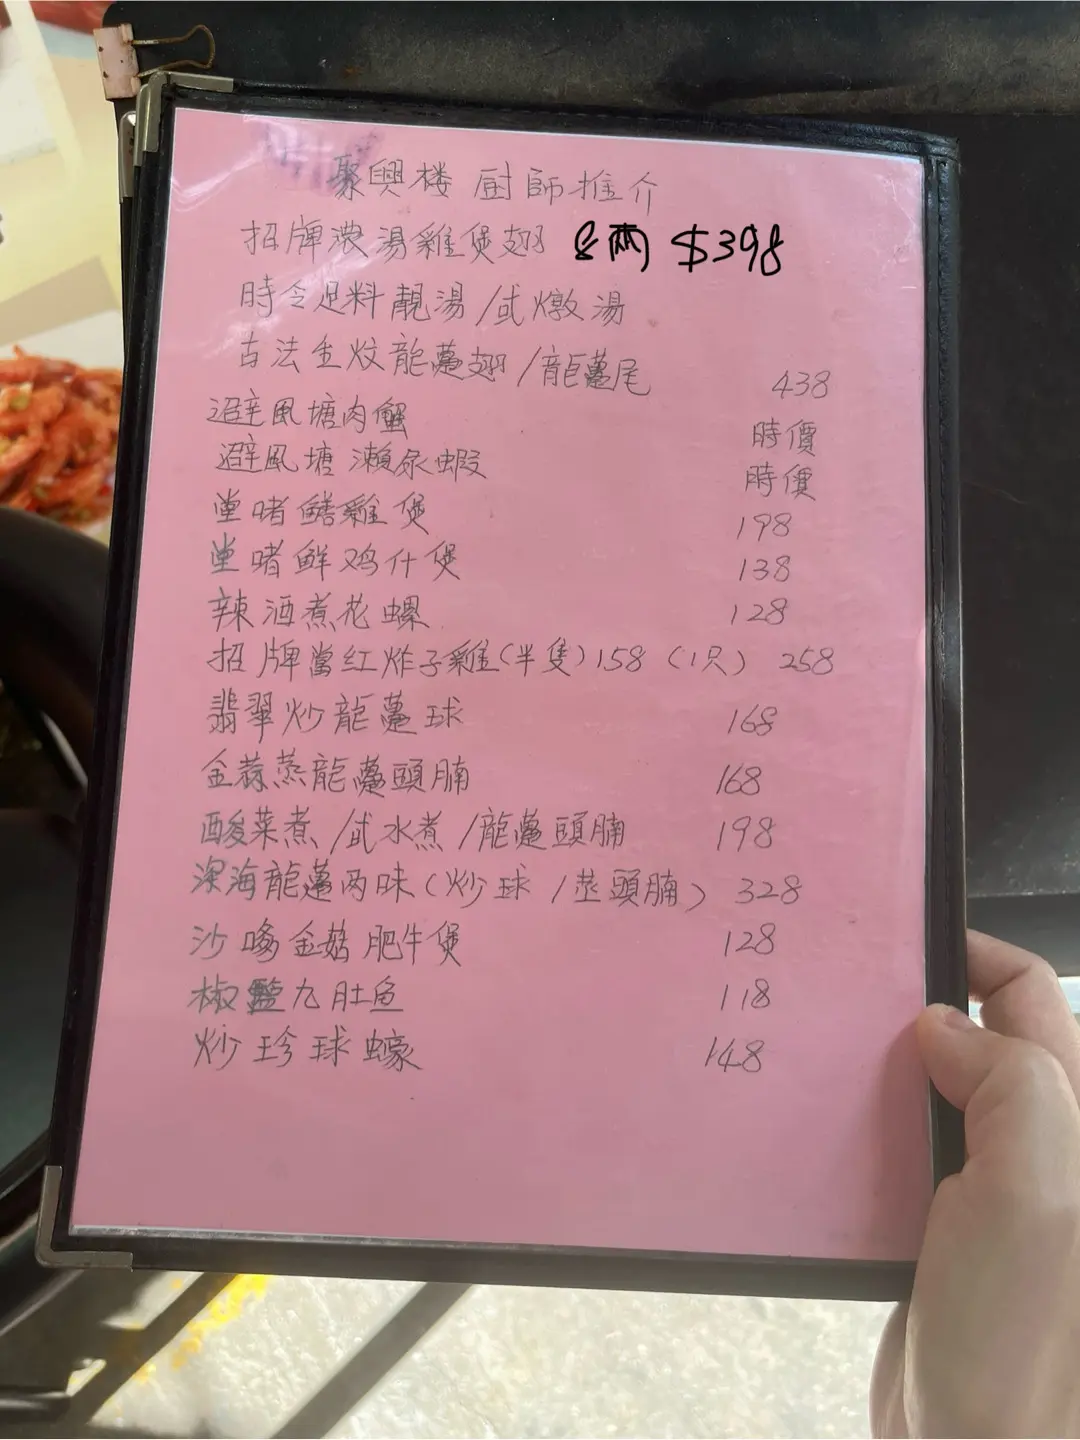 聚興楼 厨師推介
招牌濃湯雞煲翅 8兩 $398
時令足料靚湯/或燉湯
古法生炆龍躉翅/龍躉尾 438
避風塘肉蟹 時價
避風塘 瀨尿蝦 時價
堂啫鱔雞煲 198
堂啫鮮鸡什煲 138
辣酒煮花螺 128
招牌當红炸子雞(半隻)158 (1只) 258
翡翠炒龍躉球 168
金蒜蒸龍躉頭腩 168
酸菜煮/或水煮/龍躉頭腩 198
深海龍躉两味(炒球/蒸頭腩) 328
沙嗲金菇肥牛煲 128
椒鹽九肚鱼 118
炒珍球蠔 148